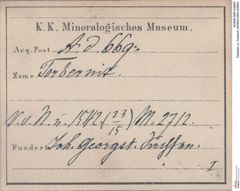 K. K. Mineralogisches Museum.
Acq. Post A.d. 669.
Name Torbernit.
V. o. N. u. 1542 (23/15) M. 2712.
Fundort Joh. Georgst. Sachsen.
I